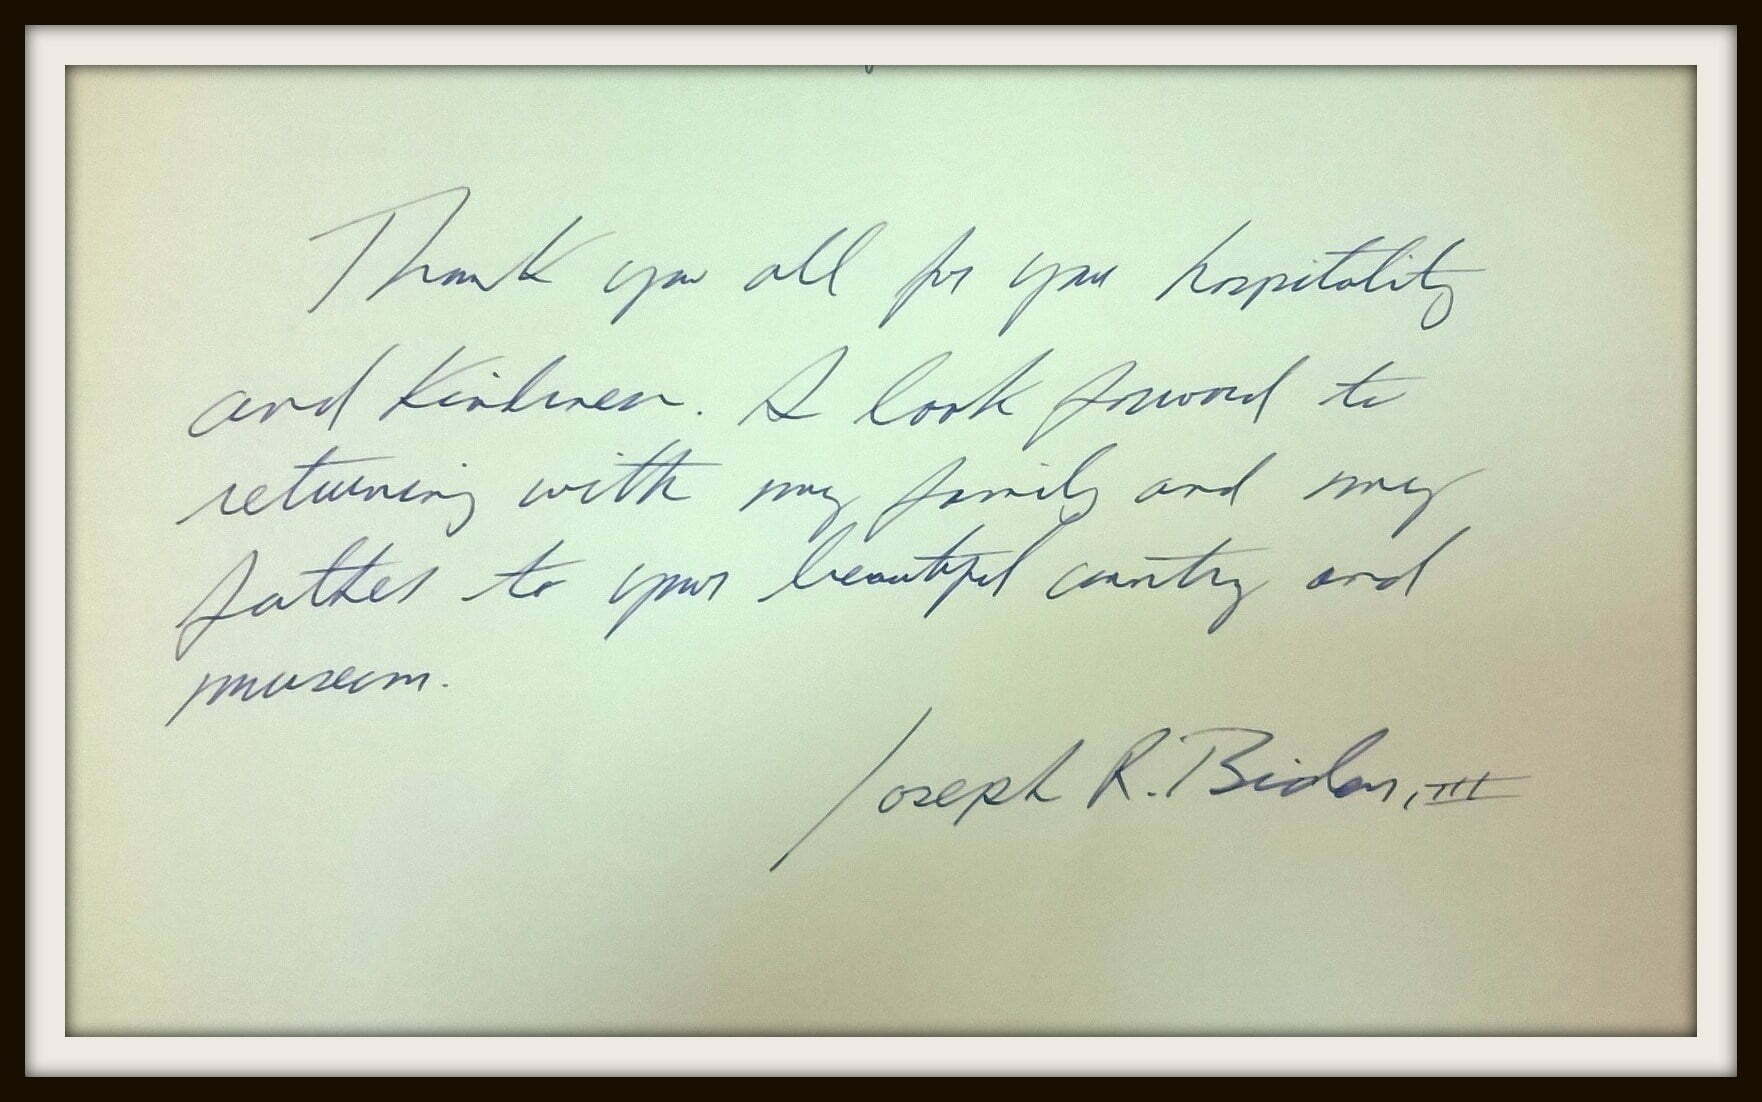 Thank you all for your hospitality
and kindness. I look forward to
returning with my family and my
father to your beautiful country and
museum.
Joseph R. Biden, III